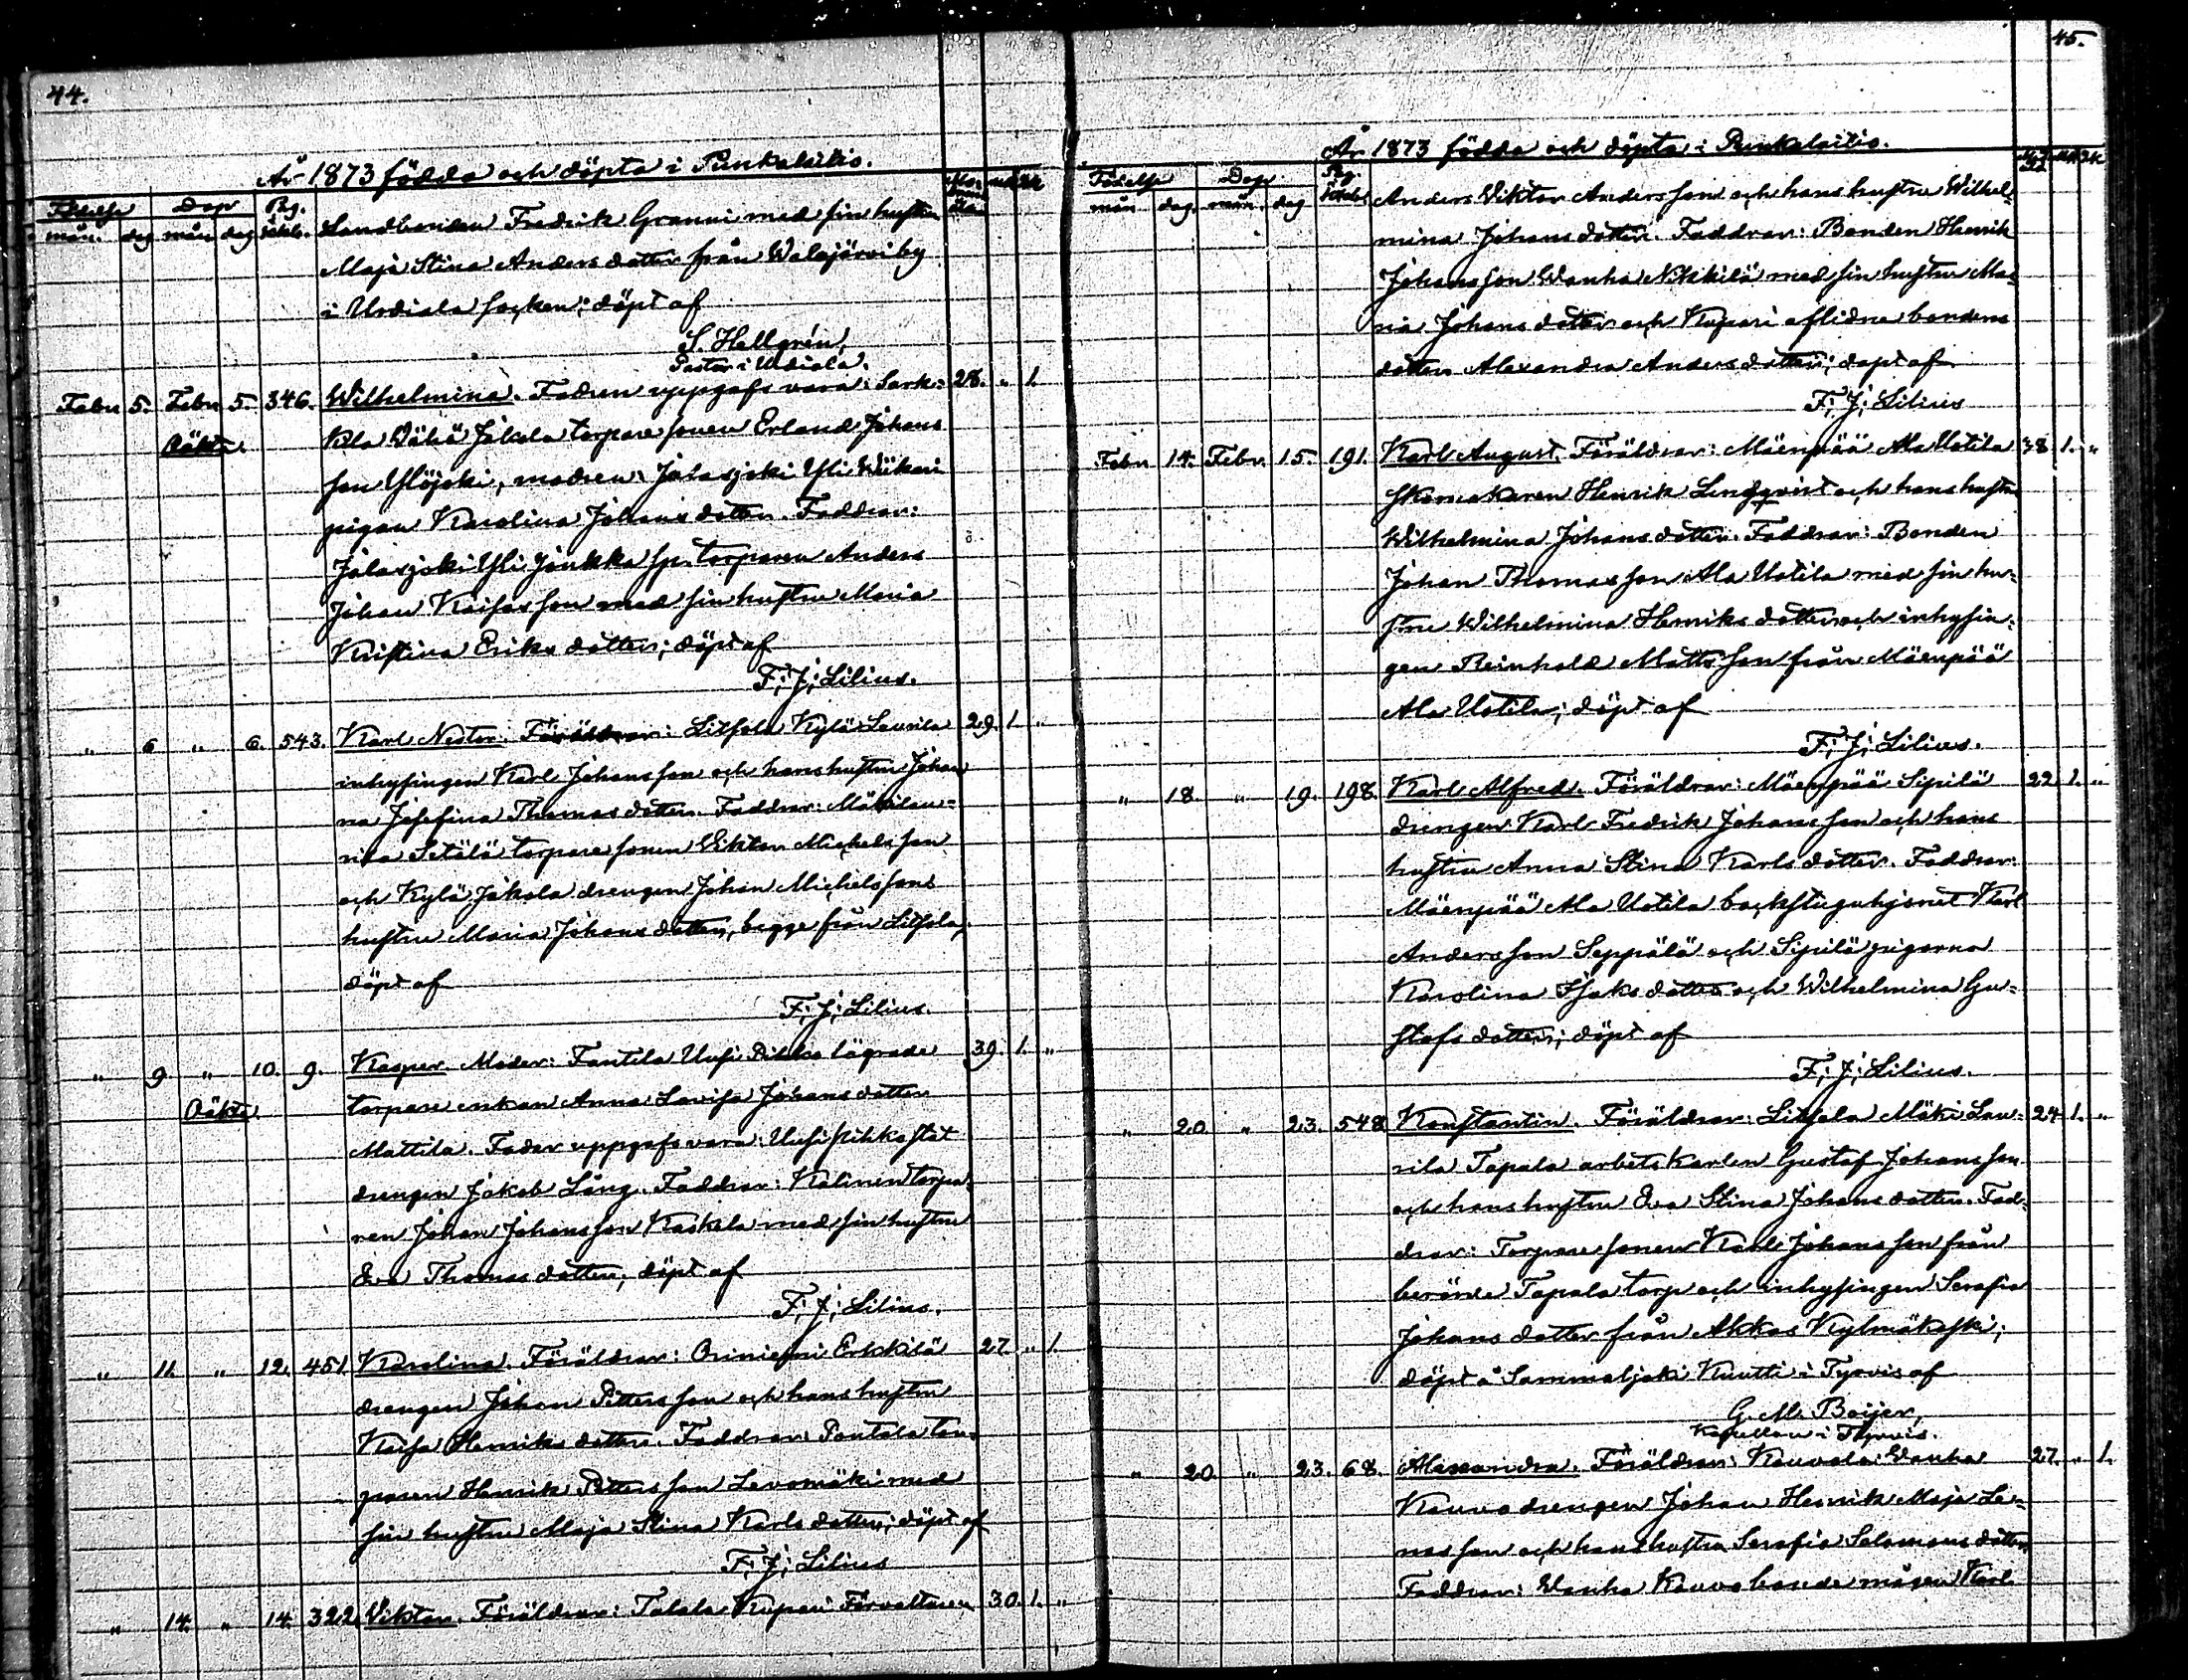 44.
År 1873 födda och döpta i Punkalaitio.
Födelse Dop Pag.
mån. dag mån dag
Landbonden Fredrik Granni med sin hustru
Maja Stina Anders dotter från Walajärvi by
i Urdiala socken; döpt af
S. Hellgrén,
Pastor i Urdiala.
Febr 5. Febr 5. 346. Wilhelmina. Fadren uppgafs vara: Sark- 28. " 1.
Oäkta. kila Wähä Jakola torpare sonen Erland Johans
son Ylöjoki, modren: Jalasjoki Yli Wiikari
pigan Karolina Johans dotter. Faddrar:
Jalasjoki Yli Jaukka sp. torparen Anders
Johan Kaisasson med sin hustru Maria
Kristina Eriks dotter; döpt af
F. J. Lilius.
" 6 " 6. 543. Karl Nestor. Föräldrar: Liitsola Kylä Laurila 29. 1. "
inhysingen Karl Johansson och hans hustru Johan
na Josefina Thomas dotter. Faddrar: Mäkilau-
rila Setälä torpare sonen Viktor Michelsson
och Kylä Jakola drengen Johan Michelssons
hustru Maria Johans dotter, begge från Liitsola,
döpt af
F. J. Lilius.
" 9 " 10. 9. Kasper. Moder: Fantila Uusi Pikka lägrade 39. 1. "
Oäkta torpare enkan Anna Lovisa Johans dotter
Mattila. Fader uppgafs vara: Uusi Pikka
drengen Jakob Lång. Faddrar: Kalinen torpa-
ren Johan Johansson Kaskela med sin hustru
Eva Thomas dotter; döpt af
F. J. Lilius.
" 11. " 12. 451. Karolina. Föräldrar: Oriniemi Erkkilä 27. " 1.
drengen Johan Pettersson och hans hustru
Kaisa Henriks dotter. Faddrar: Pantala tor-
paren Henrik Pettersson Levomäki med
sin hustru Maja Stina Karls dotter; döpt af
F. J. Lilius
" 14. " 14. 322. Viktor. Föräldrar: Talala Kupari Förvaltaren 30. 1. "
45.
År 1873 födda och döpta i Punkalaitio.
Födelse Dop Pag.
mån dag. mån. dag
Anders Viktor Andersson och hans hustru Wilhel-
mina Johans dotter. Faddrar: Bonden Henrik
Johansson Wanha Nikkilä med sin hustru Ma-
ria Johans dotter och Kupari aflidne bondens
dotter Alexandra Anders dotter; döpt af
F. J. Lilius
Febr 14. Febr. 15. 191. Karl August. Föräldrar: Mäenpää Ala Uotila 38 1. "
skomakaren Henrik Lindqvist och hans hustru
Wilhelmina Johans dotter. Faddrar: Bonden
Johan Thomasson Ala Uotila med sin hu-
stru Wilhelmina Henriks dotter och inhysin-
gen Reinhold Mattsson från Mäenpää
Ala Uotila; döpt af
F. J. Lilius.
" 18. " 19. 198. Karl Alfred. Föräldrar: Mäenpää Sipilä 22 1. "
drengen Karl Fredrik Johansson och hans
hustru Anna Stina Karls dotter. Faddrar:
Mäenpää Ala Uotila backstuguhjonet Karl
Andersson Seppälä och Sipilä pigorna
Karolina Isaks dotter och Wilhelmina Gu-
stafs dotter; döpt af
F. J. Lilius.
" 20. " 23. 548. Konstantin. Föräldrar: Liitsola Mäki Lau- 24 1. "
rila Tapala arbetskarlen Gustaf Johansson
och hans hustru Eva Stina Johans dotter. Fad-
drar: Torpare sonen Karl Johansson från
berörde Tapala torp och inhysingen Serafia
Johans dotter från Akkas Kylmäkoski;
döpt å Sammaljoki Knutti i Tyrvis af
G. M. Boijer,
Kapellan i Tyrvis.
" 20. " 23. 68. Alexandra. Föräldrar: Kouvola Wanha 27. " 1.
Kouvo drengen Johan Henrik Maja Le-
nas son och hans hustru Serafia Salomons dotter
Faddrar: Wanha Kouvo bonde mågen Karl